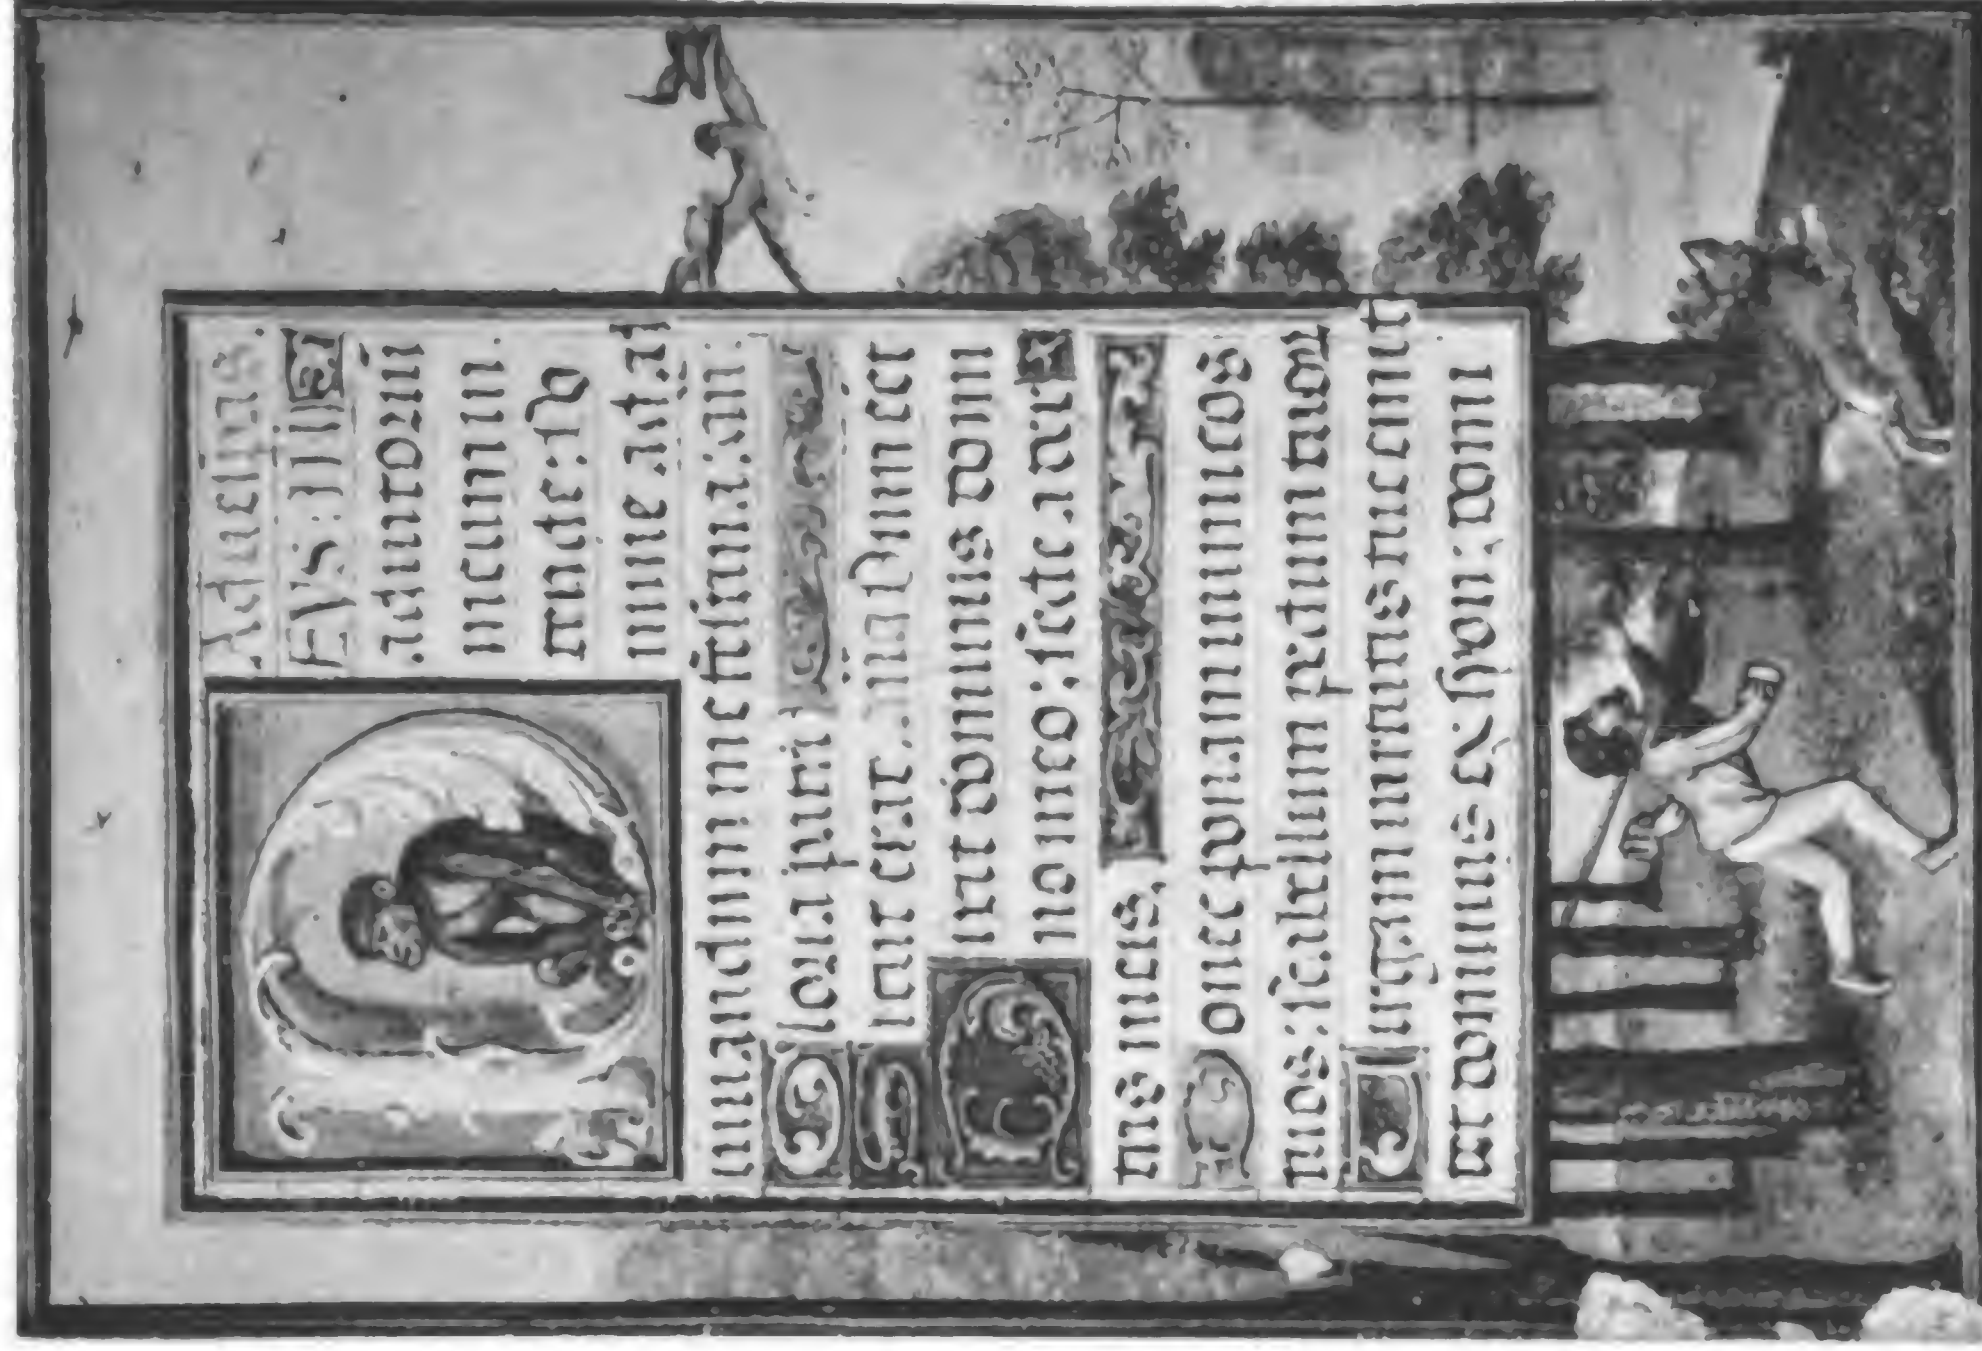 Ad uesperas.
EVS: in
adiutoriū
meum in
tende: do
mine ad ad
iuuandum me festina: an.
loria patri
icut erat.
ixit dominus domi
no meo: sede a dex
tris meis.
onec ponam inimicos
tuos: scabellum pedum tuorū
irgam uirtutis tue emit
tet dominus ex syon: domi